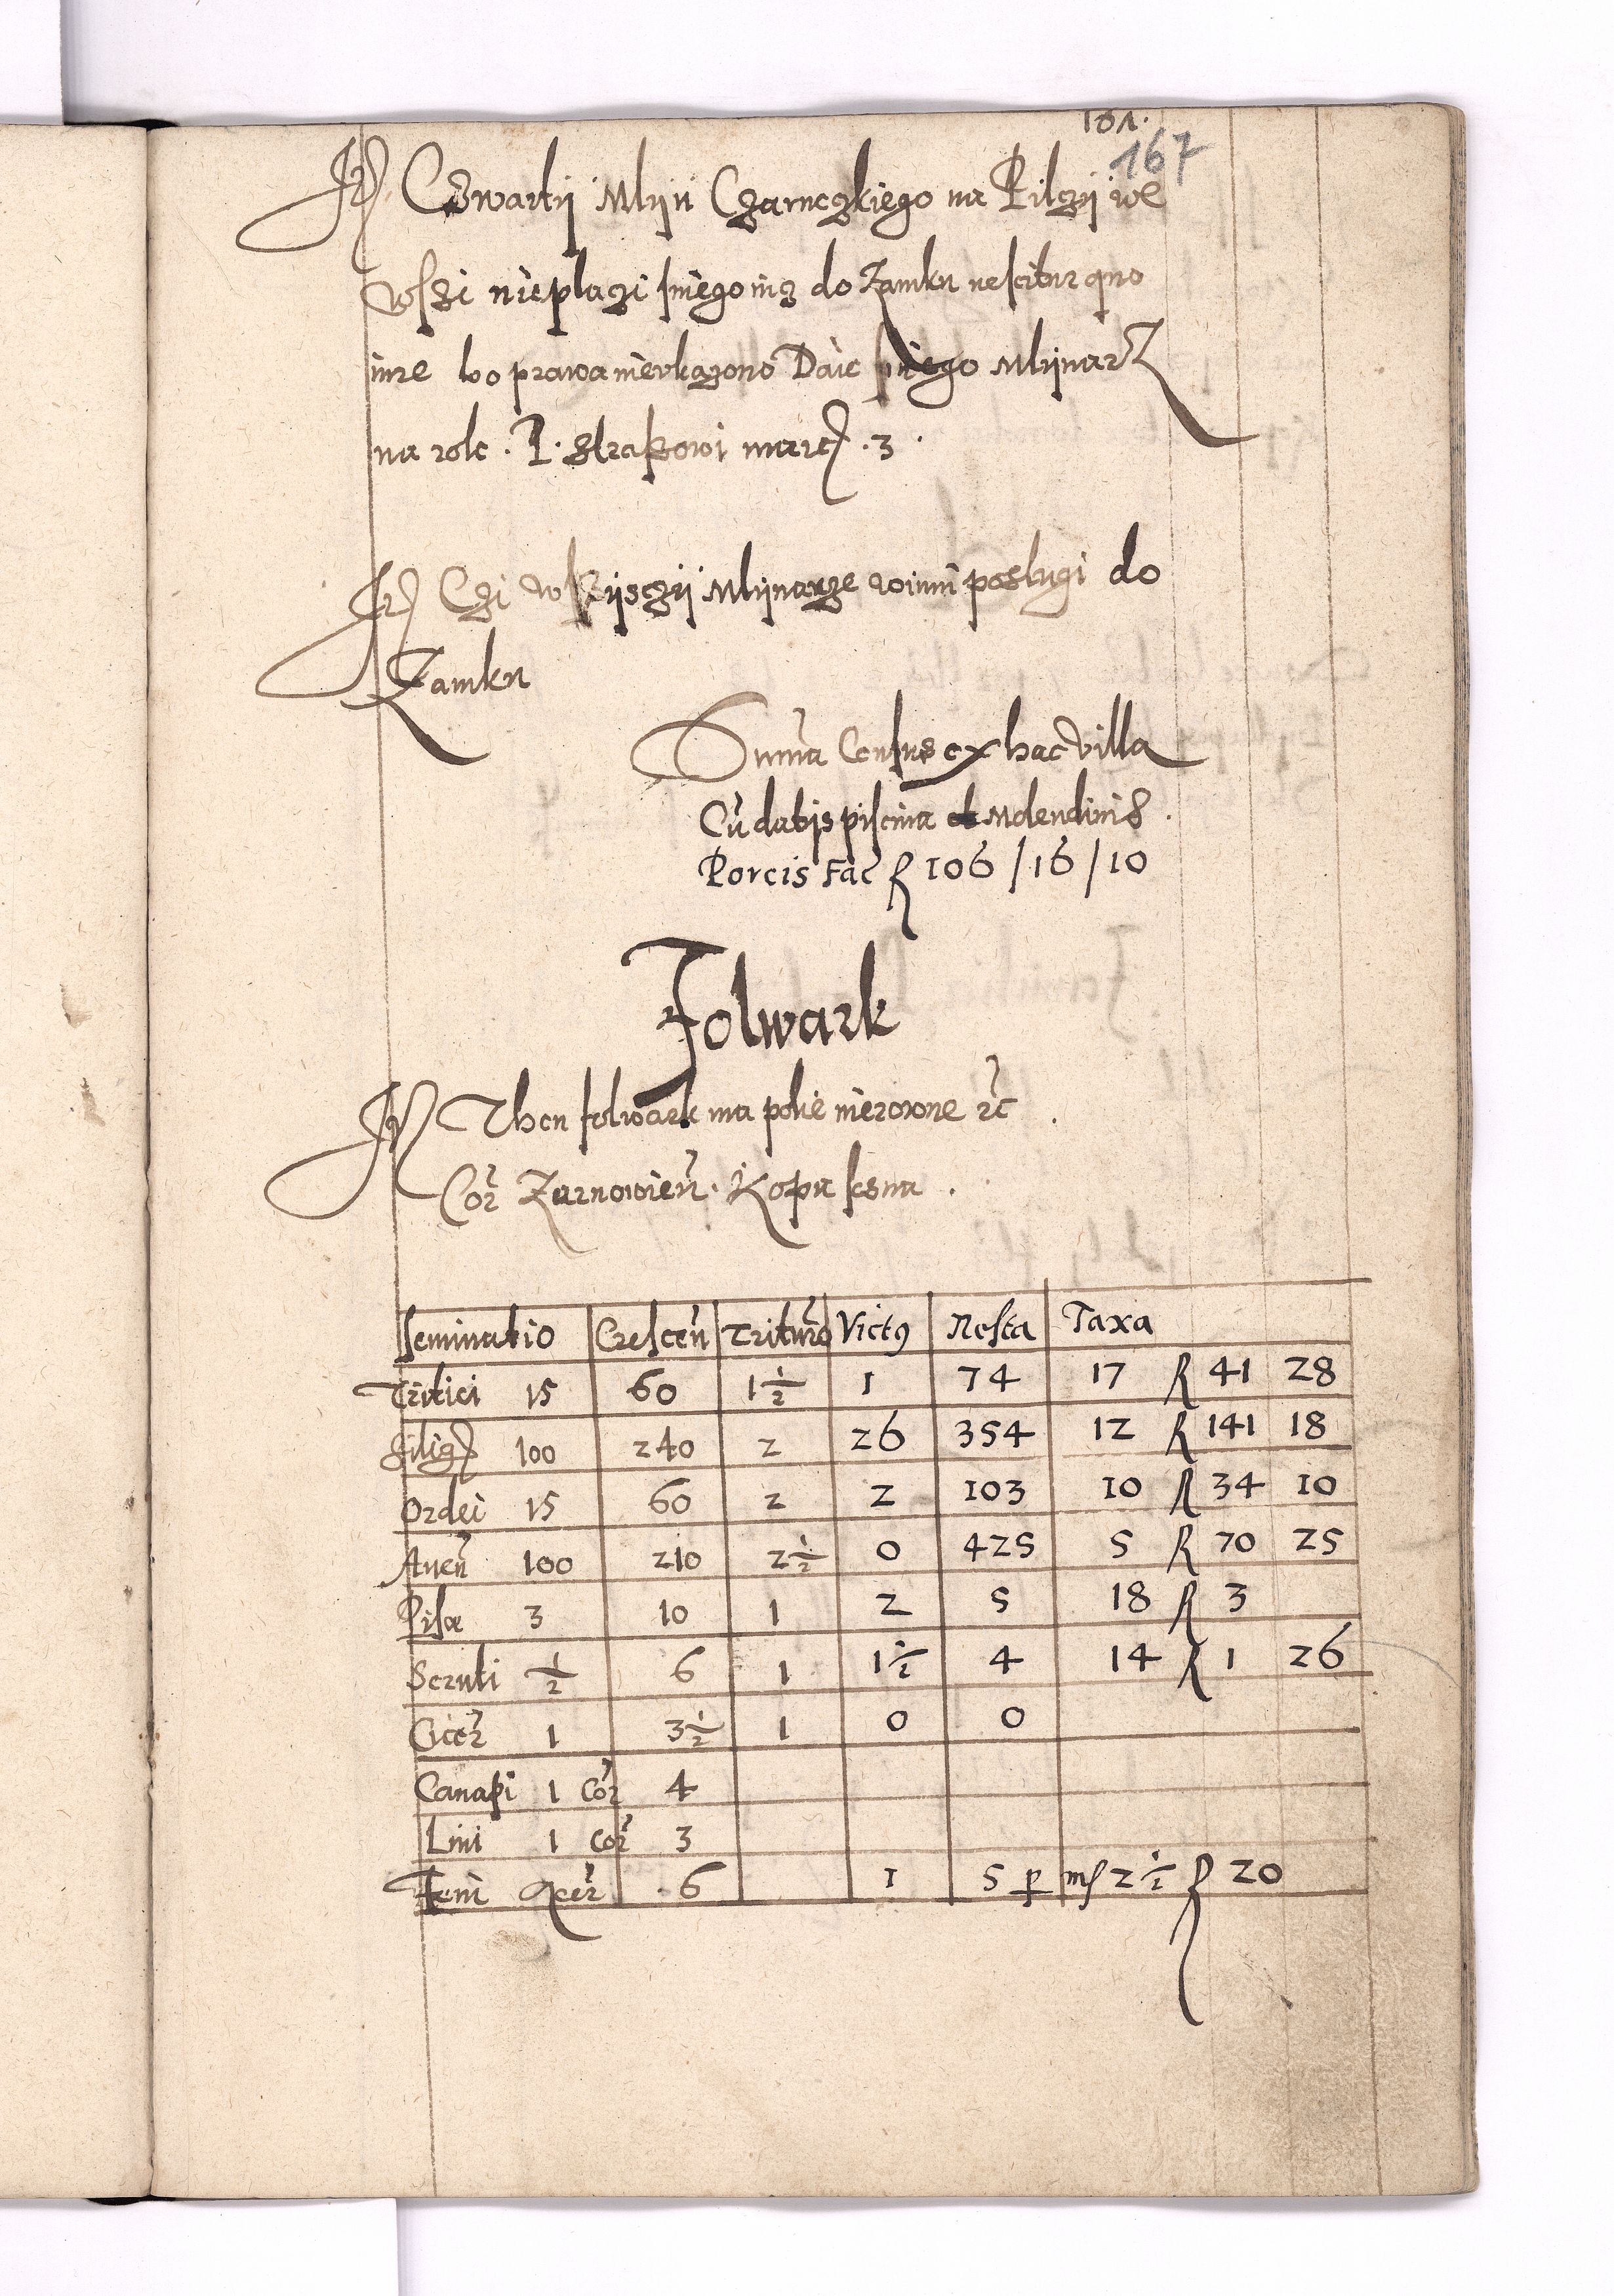 161.
167
Itē Czwartij Mlijn Czarnczkiego na Pilczij we
wszi nieplaczi sniego nicz do Zamku nescitur quo
iure bo prawa nievkazono Daie sniego MlijnarZ
na rolc . P . Straszowi marcē . 3 .
Itē Czi wszijsczij Mlijnarze winni poslugi do
Zamku
Suma Census ex hac villa
Cū datijs piscina et Molendinis .
Porcis Fac ƒ 106 / 16 / 10
Folwark
Itē Then folwark ma polie nierowne rc̄ .
Cor̄ Zarnowień . Kopa lesna .
Seminatio Crescen̄ Triturō Victꝰ Resta Taxa
Tritici 15 60 1 1/2 1 74 17 ƒ 41 28
Siligē 100 240 2 26 354 12 ƒ 141 18
Ordei 15 60 2 2 103 10 ƒ 34 10
Auen̄ 100 210 2 1/2 0 425 5 ƒ 70 25
Pisæ 3 10 1 2 5 18 ƒ 3
Scruti 1/2 6 1 1 1/2 4 14 ƒ 1 26
Cicer̄ 1 3 1/2 1 0 0
Canapi 1 Cor̄ 4
Lini 1 Cor̄ 3
Feni Acer̄ . 6 1 5 ꝑ mƒ 2 1/2 ƒ 20